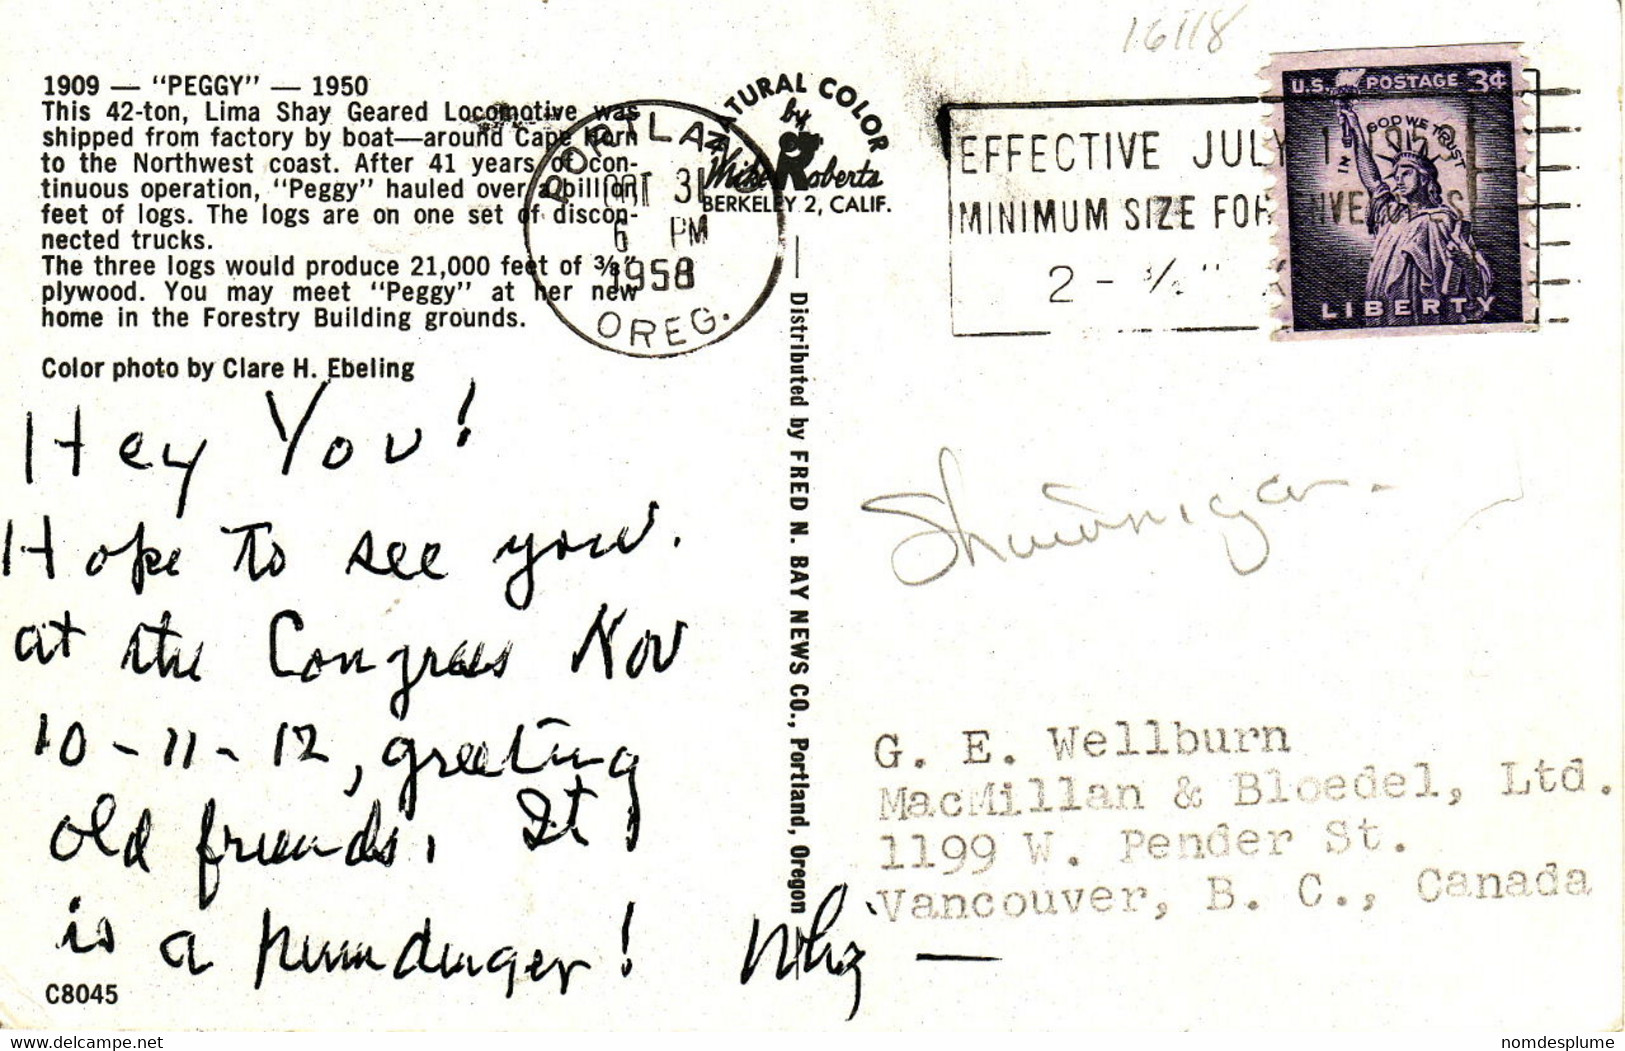 16118
1909 — "PEGGY" — 1950
This 42-ton, Lima Shay Geared Locomotive was
shipped from factory by boat—around Cape Horn
to the Northwest coast. After 41 years of con-
tinuous operation, "Peggy" hauled over a billion
feet of logs. The logs are on one set of discon-
nected trucks.
The three logs would produce 21,000 feet of ⅜"
plywood. You may meet "Peggy" at her new
home in the Forestry Building grounds.
Color photo by Clare H. Ebeling
Hey You!
Hope to see you.
at the Congress Nov
10-11-12, greeting
old friends. It
is a humdinger!
Whiz —
C8045
PORTLAND
OCT 31
6 PM
1958
OREG.
NATURAL COLOR
by
Mike Roberts
BERKELEY 2, CALIF.
Distributed by FRED N. BAY NEWS CO., Portland, Oregon
EFFECTIVE JULY 1
MINIMUM SIZE FOR
U.S. POSTAGE 3¢
IN GOD WE TRUST
LIBERTY
Shawnigan
G. E. Wellburn
MacMillan & Bloedel, Ltd.
1199 W. Pender St.
Vancouver, B. C., Canada
nomdesplume